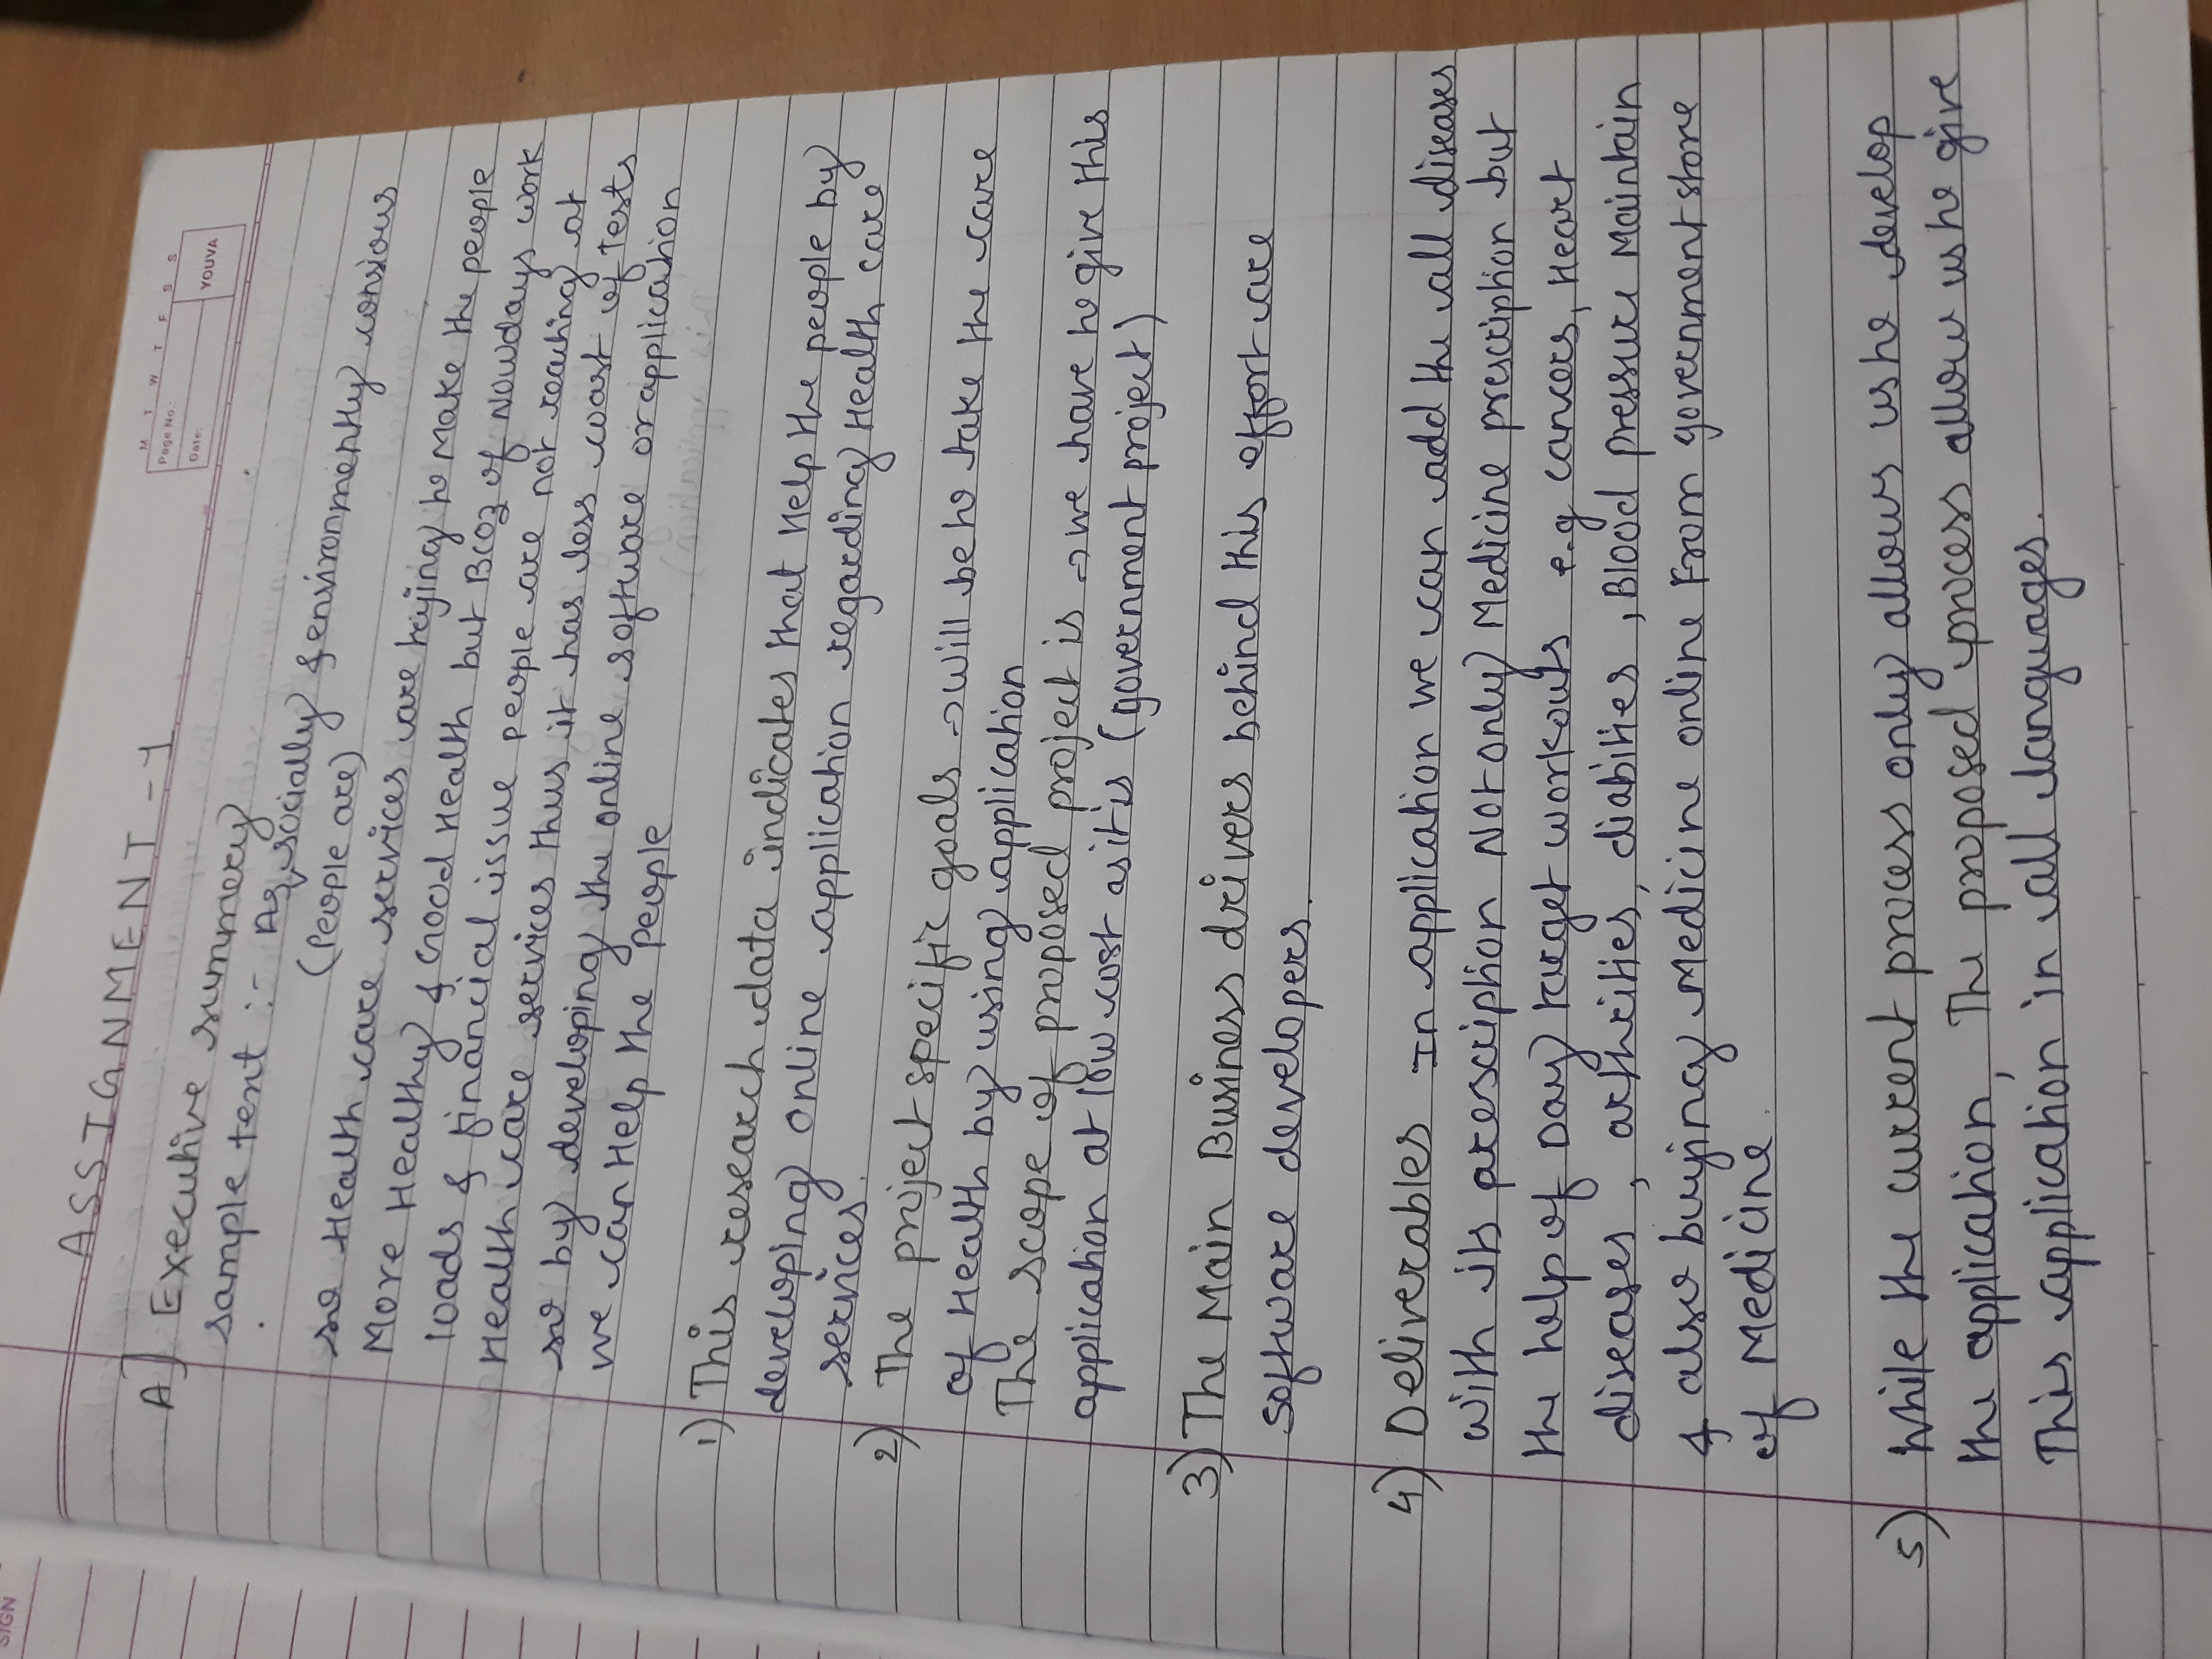 SIGN
ASSIGNMENT - 1
M T W T F S S
Page No.:
Date:
YOUVA
A] Executive summery
sample text :- As socially & environmently consious
(People are)
so Health care services are trying to Make the people
More Healthy & Good Health but Bcoz of Nowdays work
loads & financial issue people are not reaching at
Health care services thus it has less coast of Tests
so by developing the online software or application
we can Help the people
1) This research data indicates that Help the people by
developing online application regarding Health care
services.
2) The project specific goals → will be to take the care
of Health by using application
The scope of proposed project is → we have to give this
application at low cost as it is (government project)
3) The Main Business drivers behind this effort are
software developers.
4) Deliverables In application we can add the all diseases
with its prescription Not only Medicine prescription but
the help of Day target workouts e.g cancers, Heart
diseases, arthrities, diabities, Blood pressure Maintain
& also buying Medicine online From government store
of Medicine.
5) While the current process only allows us to develop
the application, The proposed process allow us to give
This application in all languages.